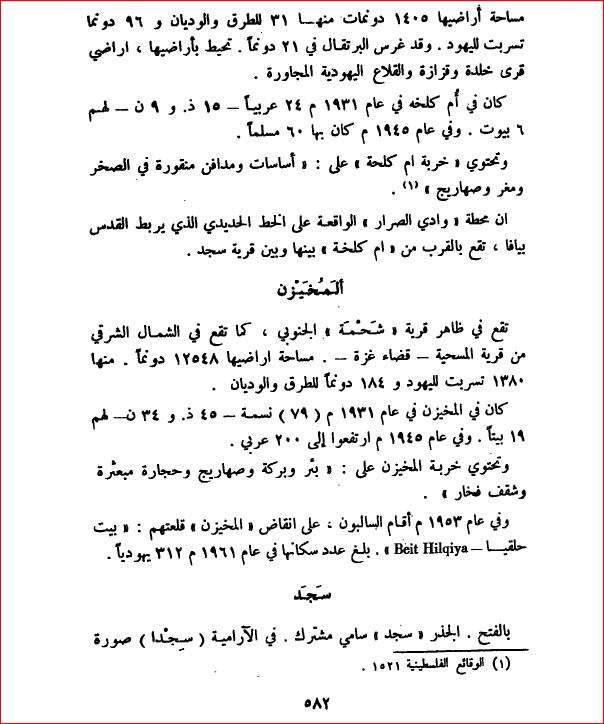 مساحة أراضيها ١٤٠٥ دونمات منهـا ٣١ للطرق والوديان و ٩٦ دونما
تسربت لليهود . وقد غرس البرتقال في ٢١ دونماً . تحيط بأراضيها ، اراضي
قرى خلدة وقزازة والقلاع اليهودية المجاورة .
كان في أم كلخه في عام ١٩٣١ م ٢٤ عربياً – ١٥ ذ. و ٩ ن – لهم
٦ بيوت . وفي عام ١٩٤٥ م كان بها ٦٠ مسلماً .
وتحتوي « خربة ام كلحة » على : « أساسات ومدافن منقورة في الصخر
ومغر وصهاريج » (١) .
ان محطة « وادي الصرار » الواقعة على الخط الحديدي الذي يربط القدس
بيافا ، تقع بالقرب من « ام كلخة » بينها وبين قرية سجد .
ألمُخَيْزن
تقع في ظاهر قرية « شَحْمَة » الجنوبي ، كما تقع في الشمال الشرقي
من قرية المسحية – قضاء غزة – . مساحة اراضيها ١٢٥٤٨ دونماً . منها
١٣٨٠ تسربت لليهود و ١٨٤ دونماً للطرق والوديان .
كان في المخيزن في عام ١٩٣١ م ( ٧٩ ) نسمة – ٤٥ ذ. و ٣٤ ن – لهم
١٩ بيتاً . وفي عام ١٩٤٥ م ارتفعوا إلى ٢٠٠ عربي .
وتحتوي خربة المخيزن على : « بئر وبركة وصهاريج وحجارة مبعثرة
وشقف فخار » .
وفي عام ١٩٥٣ م أقام السالبون ، على انقاض « المخيزن » قلعتهم : « بيت
حلقيـا – Beit Hilqiya » . بلغ عدد سكانها في عام ١٩٦١ م ٣١٢ يهودياً .
سَجَد
بالفتح . الجذر « سجد » سامي مشترك . في الآرامية ( سِجْدا ) صورة
(١) الوقائع الفلسطينية ١٥٢١ .
٥٨٢